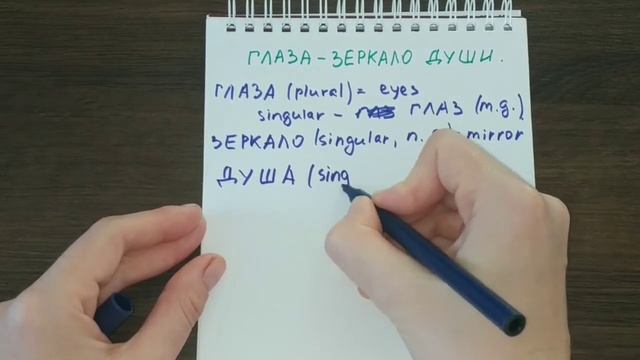 ГЛАЗА - ЗЕРКАЛО ДУШИ.
ГЛАЗА (plural) = eyes
singular - ГЛАЗ (m.g.)
ЗЕРКАЛО (singular, n. mirror
ДУША (sing